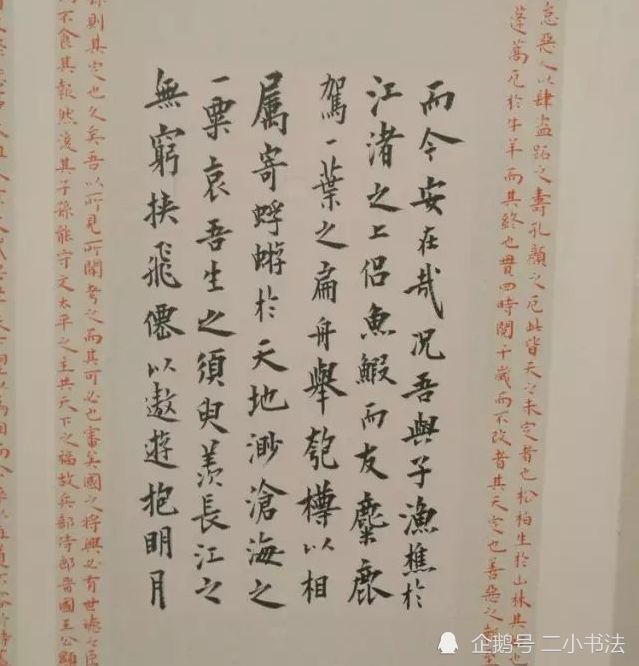 怠惡者以肆盜跖之壽孔顏之厄此皆天之未定者也松柏生於山林其
蓬蒿厄於牛羊而其終也貫四時閱千歲而不改者其天定也善惡之
而今安在哉況吾與子漁樵於
江渚之上侶魚鰕而友麋鹿
駕一葉之扁舟舉匏樽以相
属寄蜉蝣於天地渺滄海之
一粟哀吾生之須臾羨長江之
無窮挾飛僊以遨遊抱明月
孫則其定也久矣吾以所見所聞考之而其可必也審矣國之將興必有世德之臣
而不食其報然後其子孫能守文太平之主共天下之福故兵部侍郎晉國王公顯
企鹅号 二小书法